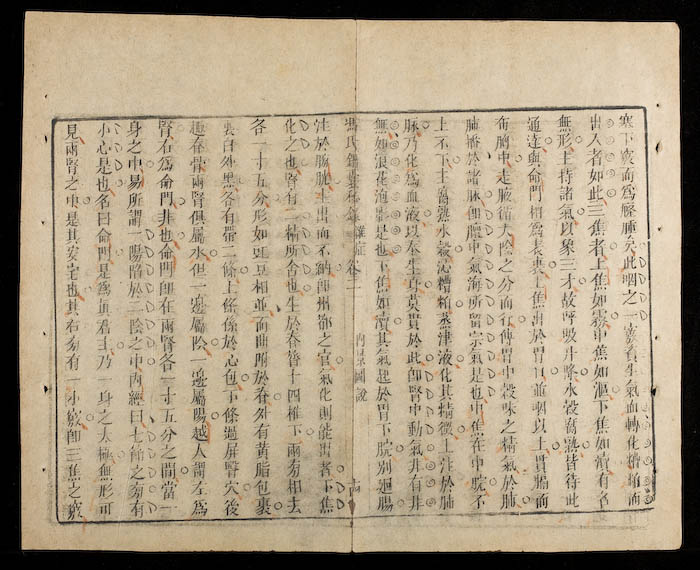 寒下衰而為腫矣此咽之一竅資生氣血轉化糟粕而
出入者如此三焦者上焦如霧中焦如漚下焦如瀆有名
無形主持諸氣以象三才故呼吸升降水穀腐熟皆待此
通達與命門相為表裏上焦出於胃口並咽以上貫膈而
布胸中走腋循太陰之分而行傳胃中穀味之精氣於肺
肺播於諸脉即膻中氣海所留宗氣是也中焦在中脘不
上不下主腐熟水穀泌糟粕蒸津液化其精微上注於肺
脉乃化為血液以奉生身莫貴於此即腎中動氣非有非
無如浪花泡影是也下焦如瀆其氣起於胃下脘別廻腸
馮氏錦囊秘錄 雜症卷三 內景圖說 十四
注於膀胱主出而不納即州都之官氣化則能出者下焦
化之也腎有二精所舍也生於脊膂十四椎下兩旁相去
各一寸五分形如豇豆相並而曲附於脊外有黃脂包裹
裏白外黑各有帶二條上條係於心包下條過屏翳穴後
趨脊骨兩腎俱屬水但一邊屬陰一邊屬陽越人謂左為
腎右為命門非也命門即在兩腎各一寸五分之間當一
身之中易所謂一陽陷於二陰之中內經曰七節之旁有
小心是也名曰命門是為真君主乃一身之太極無形可
見兩腎之中是其安宅也其右旁有一小竅即三焦之竅